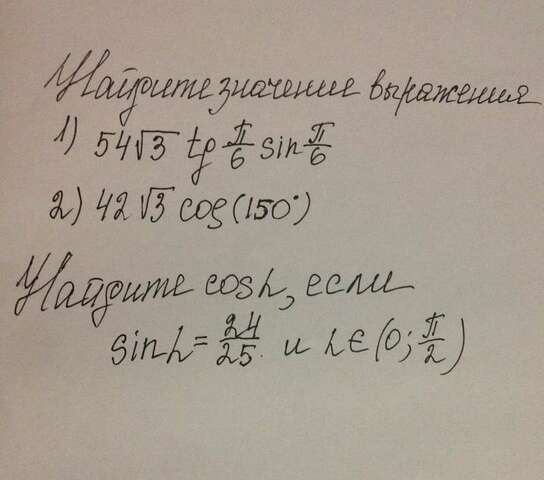 Найдите значение выражения
1) 54√3 tg π/6 sin π/6
2) 42√3 cos(150°)
Найдите cosα, если
sinα = 24/25 и α∈(0; π/2)